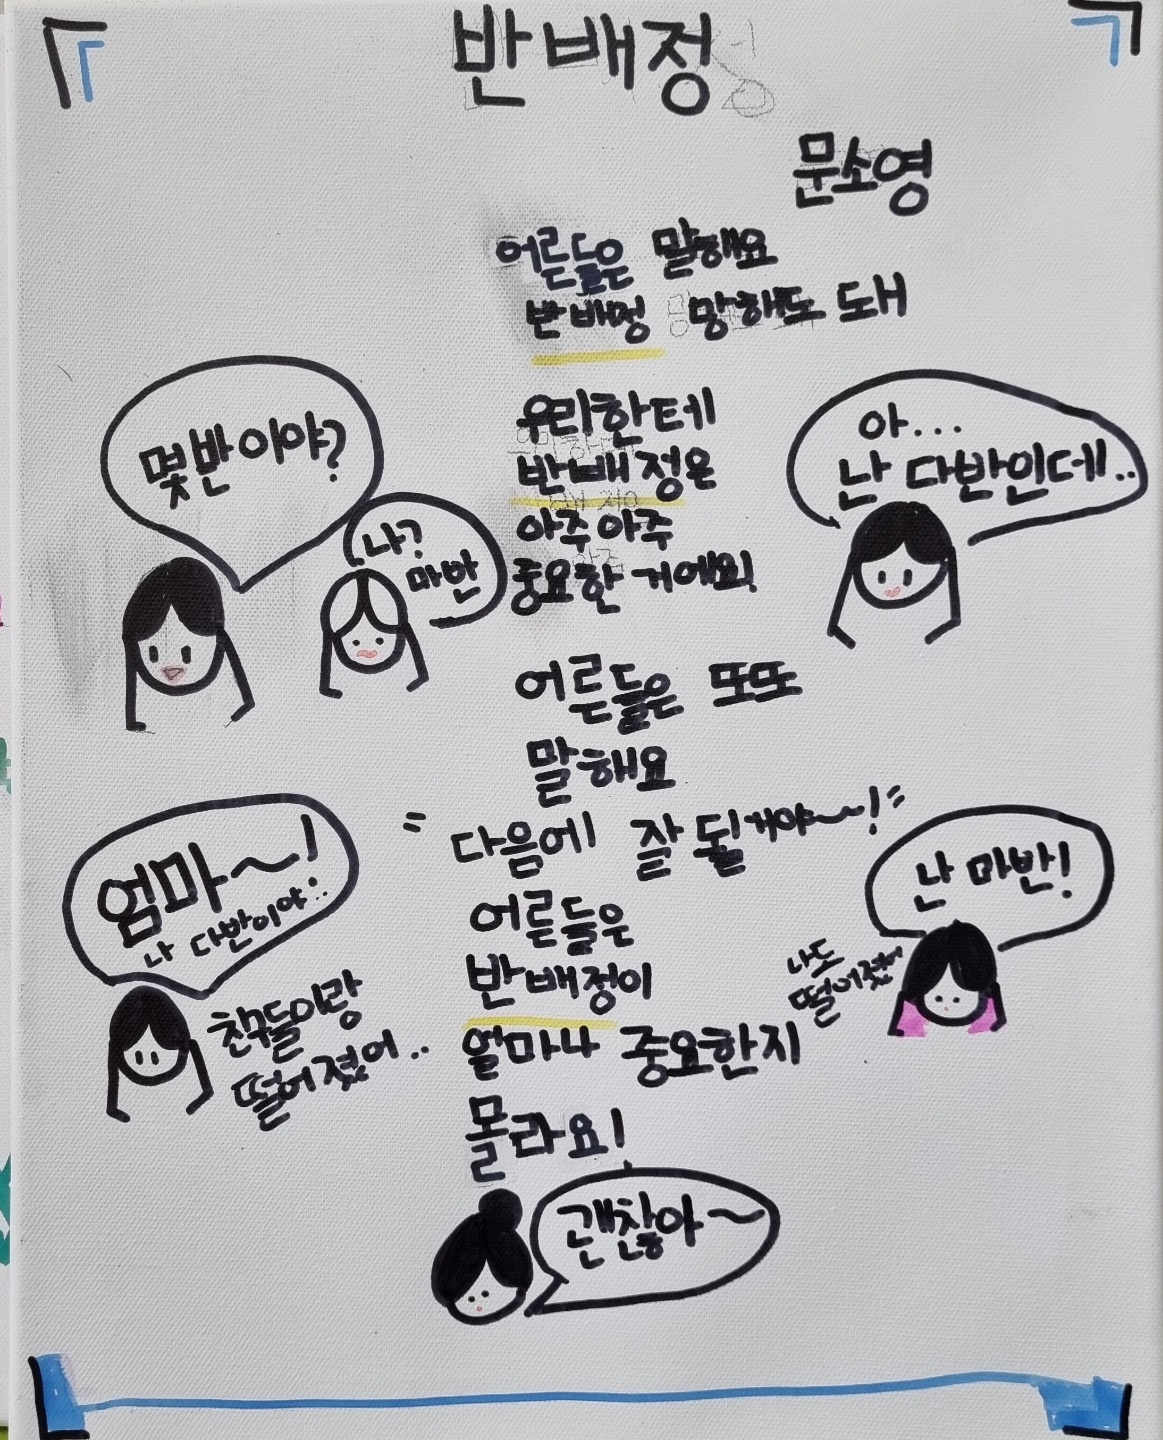 반 배정
문소영
어른들은 말해요
반 배정 망해도 돼
몇 반이야?
나?
마반
우리한테
반 배정은
아주 아주
중요한 거에요!
아...
난 다반인데..
어른들은 또또
말해요
"다음에 잘 될거야~~!"
엄마~!
나 다반이야..
친구들이랑
떨어졌어..
어른들은
반 배정이
얼마나 중요한지
몰라요!
난 마반!
나도
떨어졌어
괜찮아~